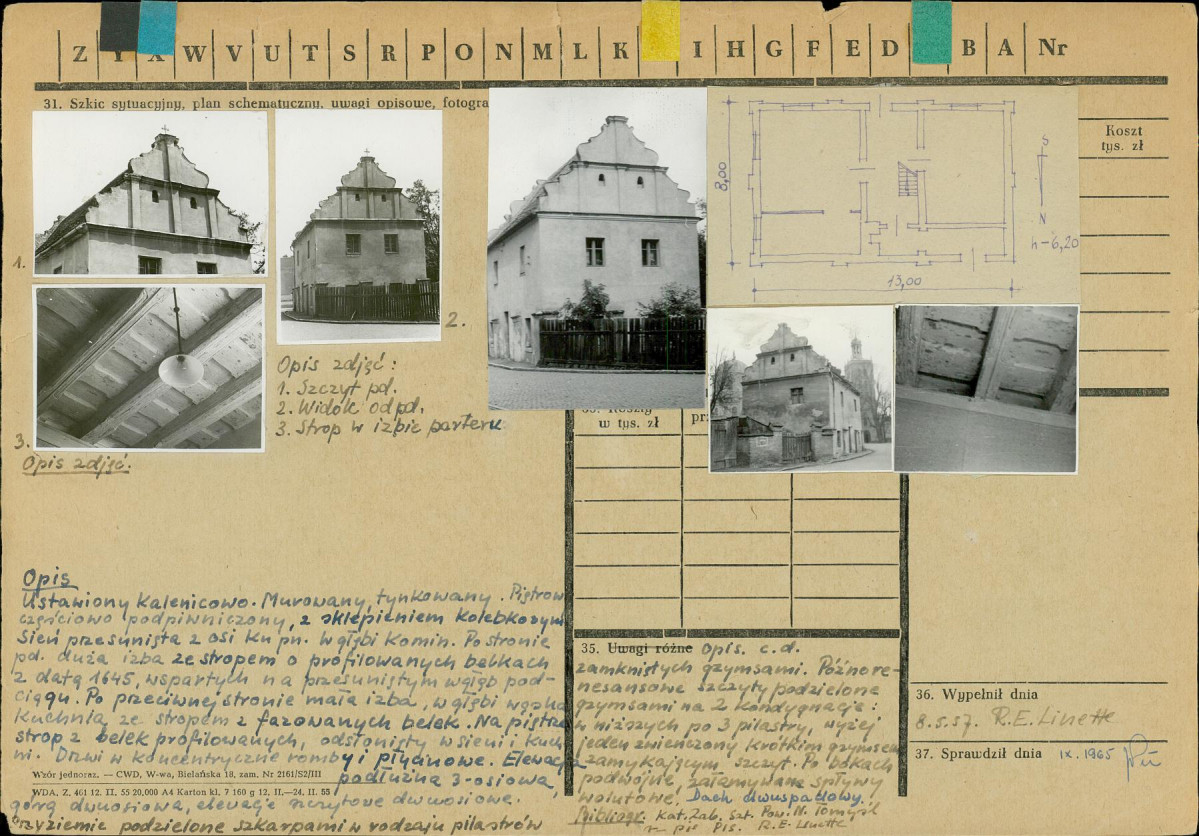 Z Y X W V U T S R P O N M L K I H G F E D B A Nr
31. Szkic sytuacyjny, plan schematyczny, uwagi opisowe, fotogra
Koszt
tys. zł
8,00
S
N
h-6,20
13,00
1.
2.
3.
Opis zdjęć:
1. Szczyt pd.
2. Widok od pd.
3. Strop w izbie parteru
Opis zdjęć.
w tys. zł
Opis
Ustawiony kalenicowo. Murowany, tynkowany. Piętrow
częściowo podpiwniczony, z sklepieniem kolebkowym
Sień przesunięta z osi ku pn. W głębi komin. Po stronie
pd. duża izba ze stropem o profilowanych belkach
z datą 1645, wspartych na przesuniętym w głąb pod-
ciągu. Po przeciwnej stronie mała izba, w głębi wąska
kuchnia ze stropem z fazowanych belek. Na piętrze
strop z belek profilowanych, odsłonięty w sieni i kuch
ni. Drzwi w koncentryczne romby i płycinowe. Elewacja
podłużna 3-osiowa,
górą dwuosiowa, elewacje szczytowe dwuosiowe.
Przyziemie podzielone szkarpami w rodzaju pilastrów
Wzór jednoraz. — CWD, W-wa, Bielańska 18, zam. Nr 2161/S2/III
WDA, Z. 461 12. II. 55 20,000 A4 Karton kl. 7 160 g 12. II.—24. II. 55
35. Uwagi różne Opis. c.d.
zamkniętych gzymsami. Późnore-
nesansowe szczyty podzielone
gzymsami na 2 kondygnacje:
w niższych po 3 pilastry, wyżej
jeden zwieńczony krótkim gzymsem
zamykającym szczyt. Po bokach
podwójne, załamywane spływy
wolutowe. Dach dwuspadowy.
Bibliogr. Kat. Zab. Szt. Pow. N. Tomyśl
R.E. Linette
36. Wypełnił dnia
8.5.57. R.E. Linette
37. Sprawdził dnia IX. 1965